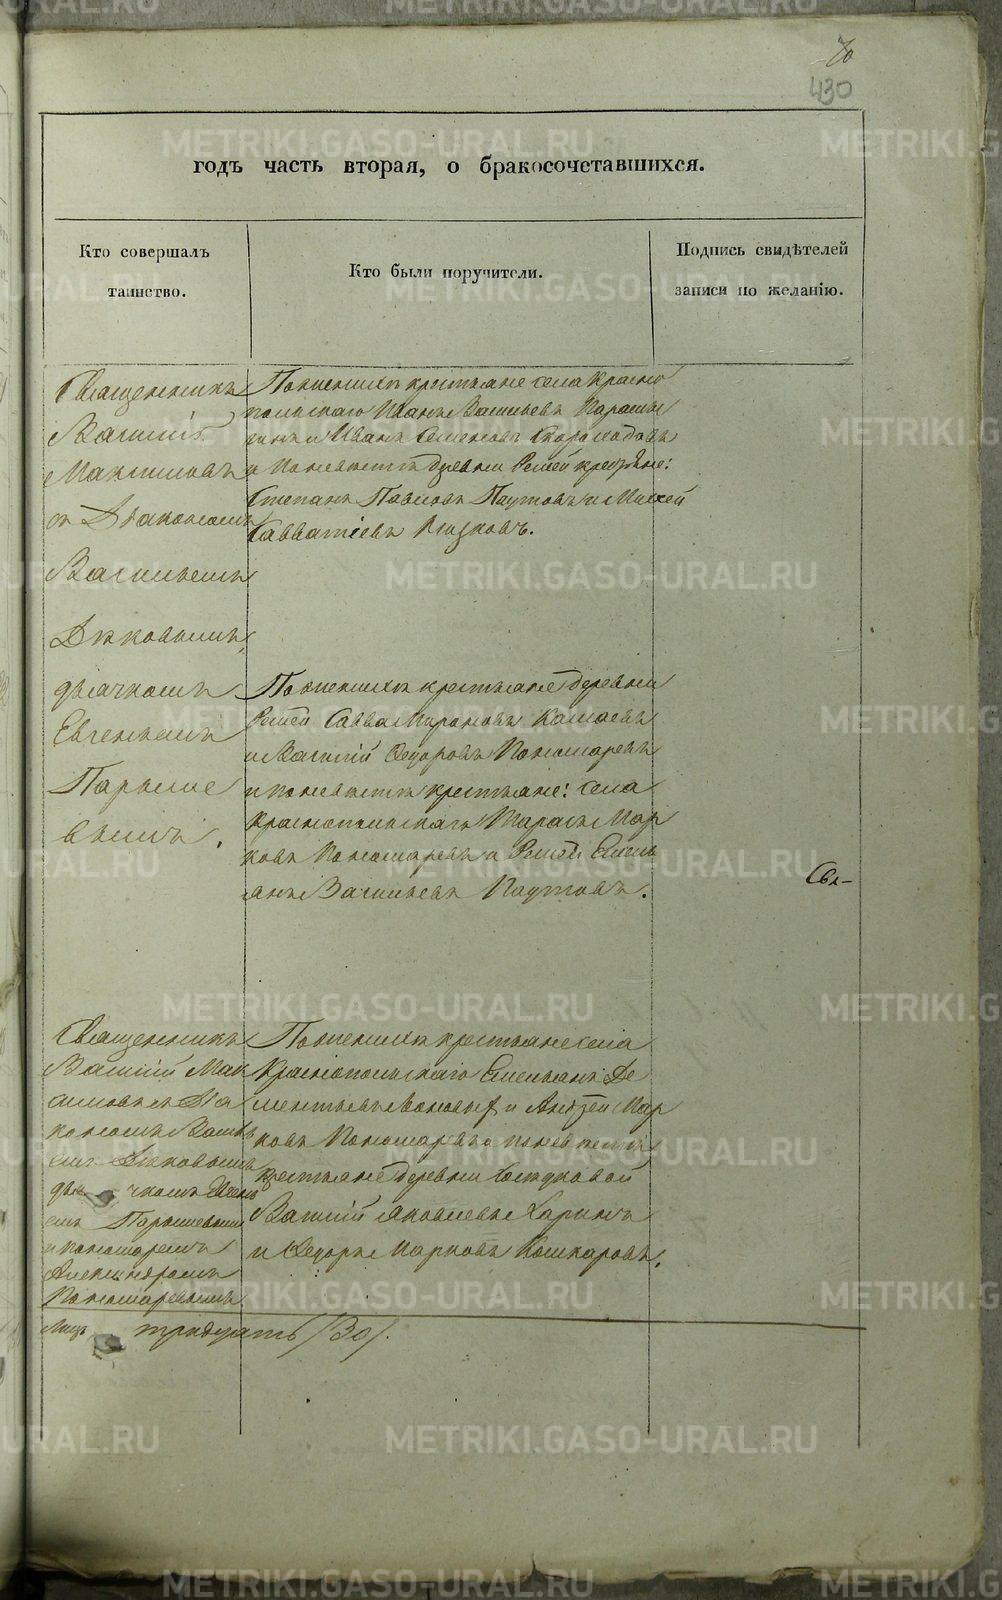 70
430
годъ часть вторая, о бракосочетавшихся.
Кто совершалъ
таинство.
Кто были поручители.
Подпись свидѣтелей
записи по желанію.
Священникъ
Василій
Максимовъ
съ Діакономъ
Васильемъ
Дьяковымъ,
дьячкомъ
Евгеніемъ
Парыше
вымъ.
По женихѣ крестьяне села Красно
польскаго Иванъ Васильевъ
и Иванъ Семеновъ Скороходовъ
и По невѣстѣ деревни Реши крестьяне:
Степанъ Павловъ Паутовъ и Михей
Савватіевъ Глазковъ.
По женихѣ крестьяне деревни
Реши Савва Мироновъ Камаевъ
и Василій Ѳедоровъ Пономаревъ
и по невѣстѣ крестьяне: села
Краснопольскаго Тарасъ Мар
ковъ Пономаревъ и Реши Емель
янъ Васильевъ Паутовъ.
Свя-
Священникъ
Василій Мак
симовъ съ Діа
кономъ Василь
емъ Дьяковымъ
дьячкомъ Евгені
емъ Парышевымъ
и пономаремъ
Александромъ
Пономаревымъ.
По женихѣ крестьяне села
Краснопольскаго Емельянъ Де
ментьевъ и Андрей Мар
ковъ Пономаревъ по невѣстѣ
крестьяне деревни
Василій Яковлевъ Ларинъ
и Ѳедоръ Марковъ Кошкаровъ.
Лицъ тридцать /30/.
METRIKI.GASO-URAL.RU